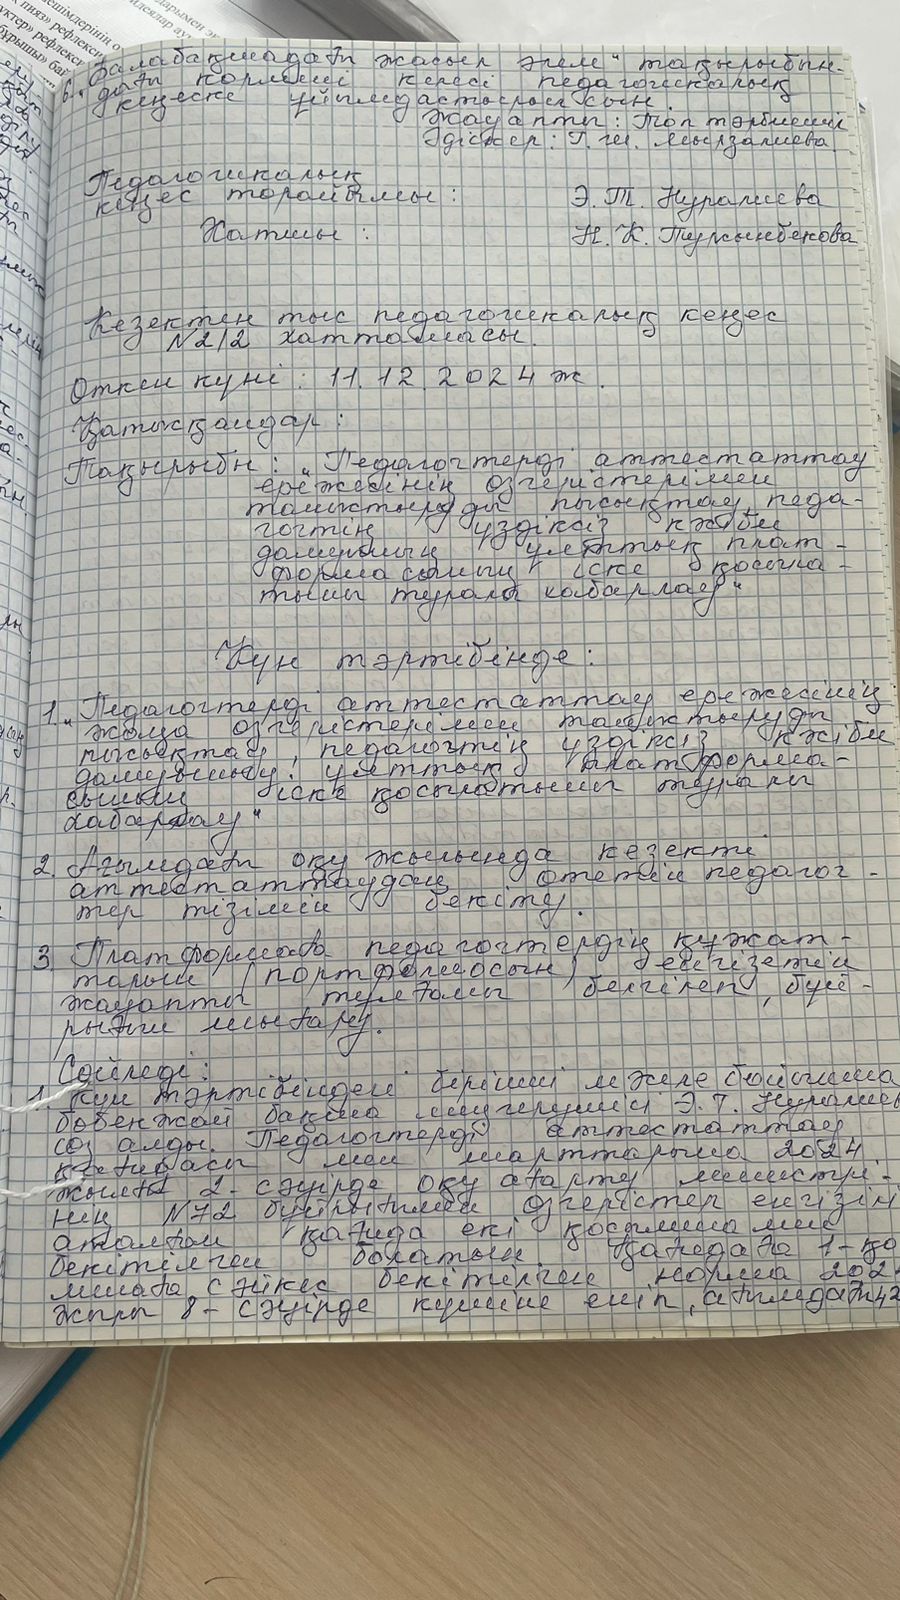 6. „Балабақшадағы жасыл әлем" тақырыбын-
дағы көрмені келесі педагогикалық
кеңеске ұйымдастырылсын.
Жауапты: Топ тәрбиешіл
Әдіскер: Г. Ш. Мырзалиева
Педагогикалық
кеңес төрайымы: Э. Т. Нуралиева
Хатшы: Н. К. Турсынбекова
Кезектен тыс педагогикалық кеңес
№2/2 хаттамасы.
Өткен күні: 11.12.2024 ж.
Қатысқандар:
Тақырыбы: „Педагогтерді аттестаттау
ережесінің өзгерістерімен
таныстыруды пысықтау, педа-
гогтің үздіксіз кәсіби
дамуының ұлттық плат-
формасының іске қосыла-
тыны туралы хабарлау"
Күн тәртібінде:
1. „Педагогтерді аттестаттау ережесінің
жаңа өзгерістерімен таныстыруды
пысықтау, педагогтің үздіксіз кәсіби
дамуының ұлттық платформа-
сының іске қосылатыны туралы
хабарлау"
2. Ағымдағы оқу жылында кезекті
аттестаттаудан өтетін педагог-
тер тізімін бекіту.
3. Платформаға педагогтердің құжат-
тарын (портфолиосын) енгізетін
жауапты тұлғаны белгілеп, бұй-
рығын шығару.
Сөйледі:
1. Күн тәртібіндегі бірінші мәселе бойынша
бөбекжай бақша меңгерушісі Э. Т. Нуралиева
сөз алды. Педагогтерді аттестаттау
қағидасы мен шарттарына 2024
жылғы 2-сәуірде оқу ағарту министрі-
нің №72 бұйрығымен өзгерістер енгізілі
аталған қағида екі қосымшамен
бекітілген болатын. Қағидаға 1-қо
мшаға сәйкес бекітілген норма 202
жылы 8-сәуірде күшіне еніп, ағымдағы